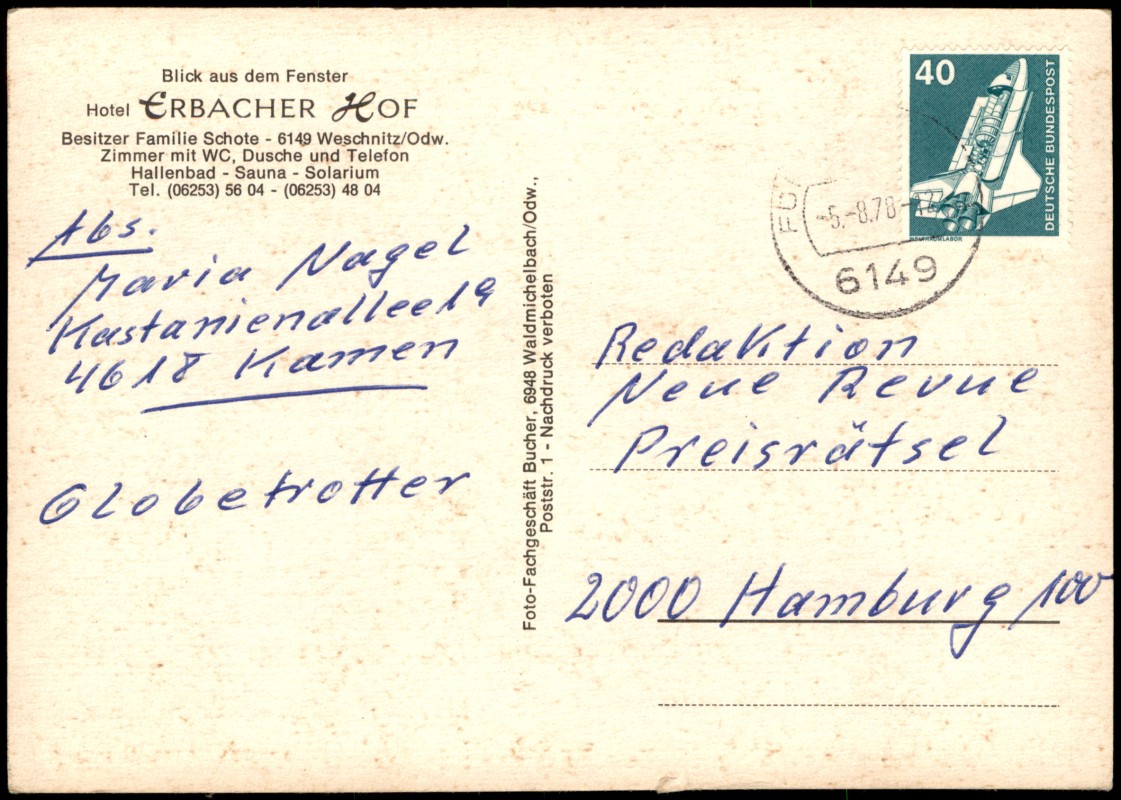 Blick aus dem Fenster
Hotel ERBACHER HOF
Besitzer Familie Schote - 6149 Weschnitz/Odw.
Zimmer mit WC, Dusche und Telefon
Hallenbad - Sauna - Solarium
Tel. (06253) 56 04 - (06253) 48 04
Abs.
Maria Nagel
Kastanienallee 1a
4618 Kamen
Globetrotter
Foto-Fachgeschäft Bucher, 6948 Waldmichelbach/Odw.,
Poststr. 1 - Nachdruck verboten
40
DEUTSCHE BUNDESPOST
WELTRAUMLABOR
-5.-8.78-12
6149
Redaktion
Neue Revue
Preisrätsel
2000 Hamburg 100